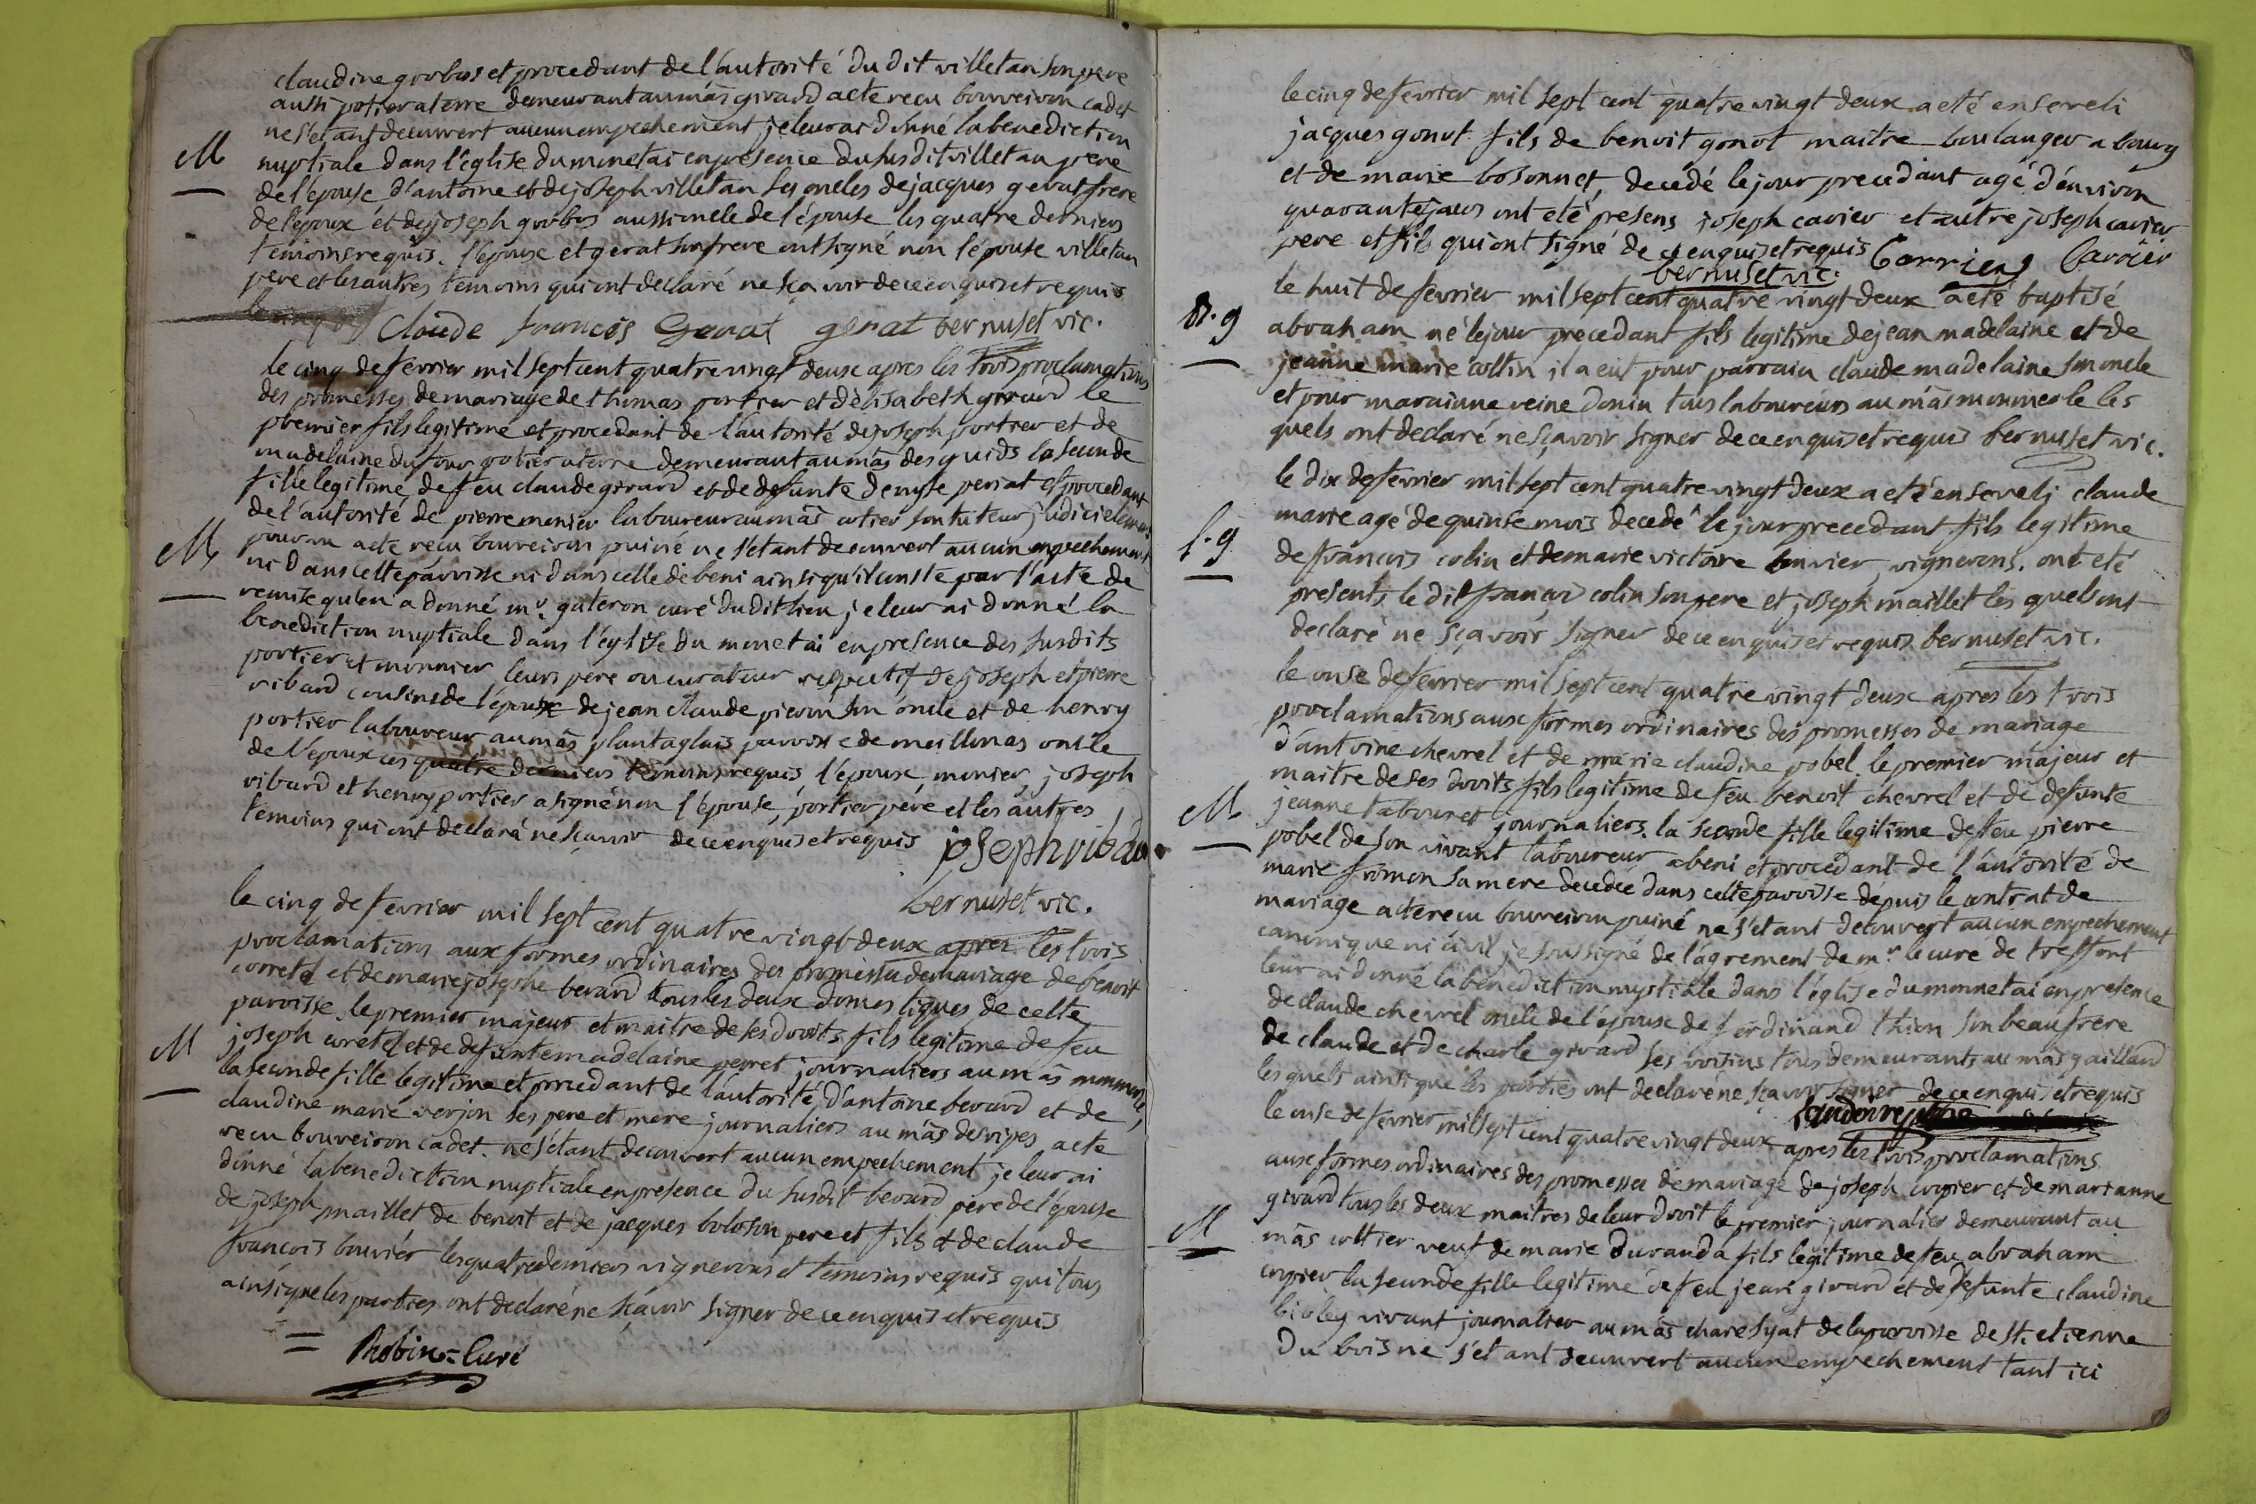 claudine gorbos et procedant de l'autorité du dit villetan son pere
aussi potier a terre demeurant au mâs girard acte recu bouveiron cadet
ne s'etant decouvert aucun empechement, je leur ai donné la benediction
M
nuptiale dans l'église du monetai en presence du susdit villetan pere
de l'epouse d'antoine et de joseph villetan ses oncles de jacques gerat frere
de l'epoux et de joseph gorbos aussi oncle de l'épouse les quatre derniers
temoins requis. l'epoux et gerat son frere ont signé non l'épouse villetan
pere et les autres temoins qui ont declaré ne sçavoir de ce enquis et requis
le cinq de
Claude francois Gerat gerat bernuset vic.
le cinq de fevrier mil sept cent quatre vingt deux apres les trois proclamations
des promesses de mariage de thomas portier et d'elisabeth girard le
premier fils legitime et procedant de l'autorité de joseph portier et de
madelaine dufour potier a terre demeurant au mâs des guids la seconde
fille legitime de feu claude girard et de defunte denyse periat et procedant
de l'autorité de pierre monier laboureur au mâs cotier son tuteur judicielement
M
pourvu acte reçu bouveiron puiné ne s'etant decouvert aucun empechement
ni dans cette parroisse ni dans celle de beni ainsi qu'il conste par l'acte de
remise qu'en a donné mr. gateron curé du dit lieu, je leur ai donné la
benediction nuptiale dans l'église du monetai en presence des susdits
portier et monnier leurs pere ou curateur respectif de joseph et pierre
vibard cousins de l'epoux de jean claude pieron son oncle et de henry
portier laboureur au mâs plantaglais parroisse de meillonas oncle
de l'epoux ces quatre derniers temoins requis l'epoux monier joseph
vibard et henry portier a signé non l'épouse, portier père et les autres
temoins qui ont declaré ne sçavoir de ce enquis et requis joseph vibard
bernuset vic.
le cinq de fevrier mil sept cent quatre vingt deux apres les trois
proclamations aux formes ordinaires des promesses de mariage de benoit
corretel et de marie josephe berard tous les deux domestiques de cette
paroisse. le premier majeur et maitre de ses droits fils legitime de feu
M
joseph curetel et de defunte madelaine peyret journaliers au mâs monmerle,
la seconde fille legitime et procedant de l'autorité d'antoine berard et de
claudine marie verjon ses pere et mere journaliers au mâs des vipes acte
recu bouveiron cadet. ne s'etant decouvert aucun empechement je leur ai
donné la benediction nuptiale en presence du susdit berard pere de l'épouse
de joseph maillet de benoit et de jacques boloson pere et fils et de claude
francois bouviér les quatre derniers vignerons et temoins requis qui tous
ainsi que les parties ont declaré ne sçavoir signer de ce enquis et requis
Robin = Curé
le cinq de fevrier mil sept cent quatre vingt deux a eté enseveli
jacques gonot fils de benoit gonot maitre boulanger a bourg
et de marie bosonnet, decedé le jour precedant agé d'environ
quarante jours ont eté presens joseph carier et autre joseph carier
pere et fils qui ont signé de ce enquis et requis Carrier Carrier
bernuset vic.
B. g
le huit de fevrier mil sept cent quatre vingt deux a eté baptisé
abraham né le jour precedant fils legitime de jean madelaine et de
jeanne marie collin il a eut pour parrain claude madelaine son oncle
et pour maraine reine donin tous laboureurs au mâs monmerle les
quels ont declaré ne sçavoir signer de ce enquis et requis bernuset vic.
le dix de fevrier mil sept cent quatre vingt deux a eté enseveli claude
marie agé de quinse mois decedé le jour precedant fils legitime
f. g
de francois colin et de marie victoire bouvier, vignerons. ont eté
presents le dit francois colin son pere et joseph maillet les quels ont
declaré ne sçavoir signer de ce enquis et requis bernuset vic.
le onse de fevrier mil sept cent quatre vingt deux apres les trois
proclamations aux formes ordinaires des promesses de mariage
d'antoine chevrel et de marie claudine pobel. le premier majeur et
maitre de ses droits fils legitime de feu benoit chevrel et de defunte
M
jeanne tabouret journaliers. la seconde fille legitime de feu pierre
pobel de son vivant laboureur a beni et procedant de l'autorité de
marie fromon sa mere decedée dans cette paroisse depuis le contrat de
mariage acte recu bouveiron puiné ne s'etant decouvert aucun empechement
canonique ni civil je soussigné de l'agrement de mr. le curé de treffort
leur ai donné la benediction nuptiale dans l'église du monnetai en presence
de claude chevrel oncle de l'époux de ferdinand thion son beau frere
de claude et de charle girard ses voisins tous demeurants au mâs gaillard
les quels ainsi que les parties ont declaré ne sçavoir signer de ce enquis et requis
le onse de fevrier mil sept cent quatre vingt deux apres les trois proclamations
aux formes ordinaires des promesses de mariage de joseph copier et de marianne
girard tous les deux maitres de leur droit le premier journalier demeurant au
M
mâs cottier veuf de marie durand a fils legitime de feu abraham
copier la seconde fille legitime de feu jean girard et de defunte claudine
bioley vivant journalier au mâs charesyat de la paroisse de st. etienne
du bois ne s'etant decouvert aucun empechement tant ici